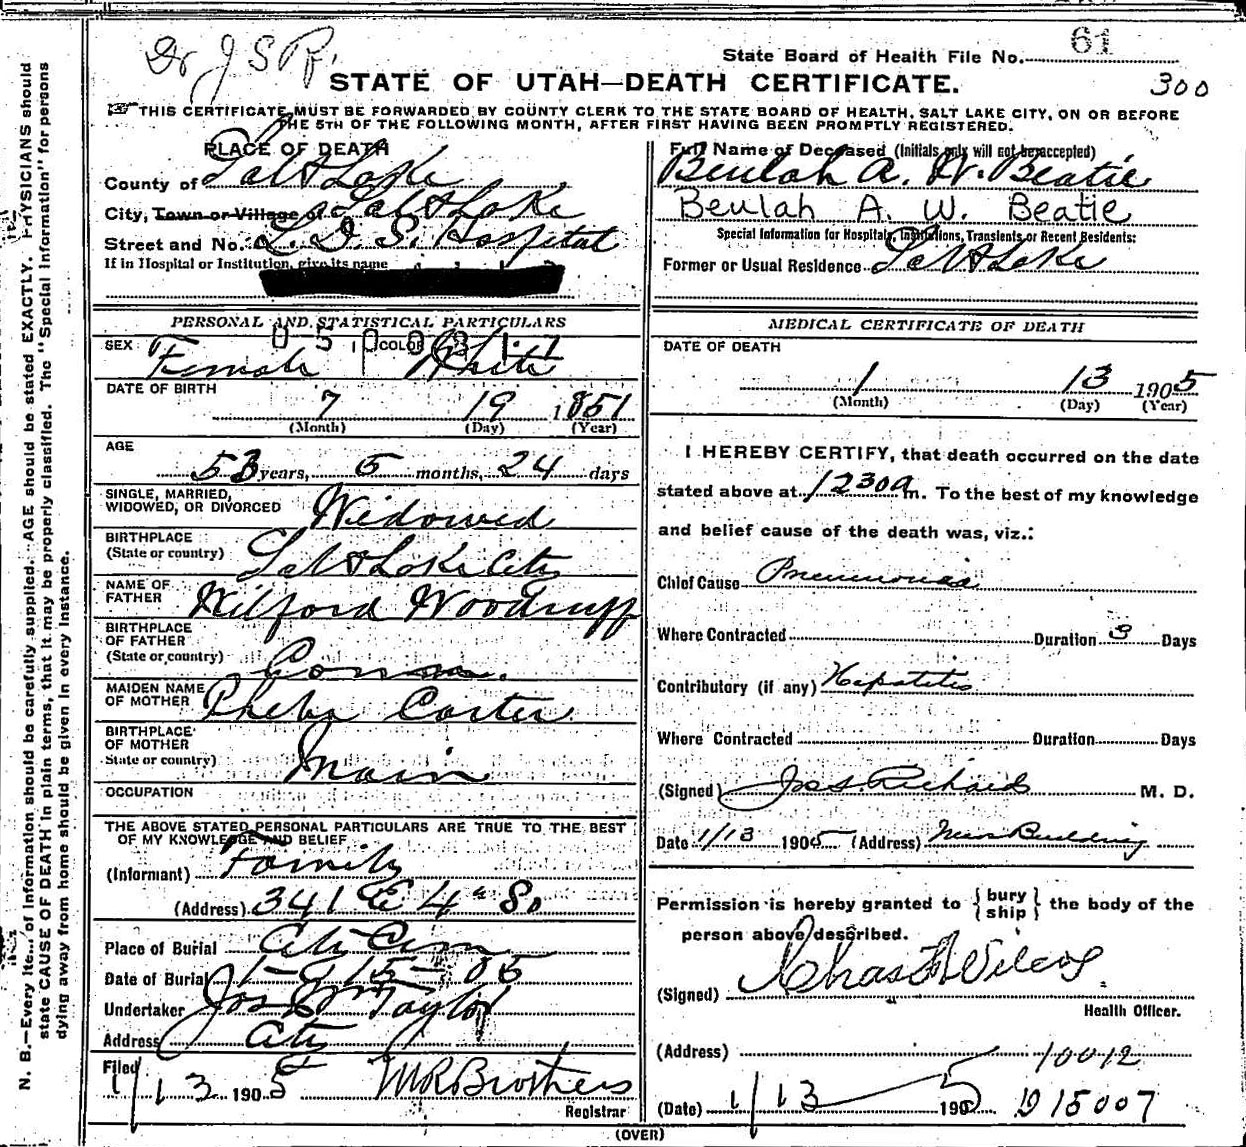 Dr J S R.
State Board of Health File No. 61
300
STATE OF UTAH—DEATH CERTIFICATE.
THIS CERTIFICATE MUST BE FORWARDED BY COUNTY CLERK TO THE STATE BOARD OF HEALTH, SALT LAKE CITY, ON OR BEFORE
THE 5TH OF THE FOLLOWING MONTH, AFTER FIRST HAVING BEEN PROMPTLY REGISTERED.
PLACE OF DEATH
County of Salt Lake
City, Town or Village of Salt Lake
Street and No. L. D. S. Hospital
If in Hospital or Institution, give its name
Full Name of Deceased (Initials only will not be accepted)
Beulah A. W. Beatie
Beulah A. W. Beatie
Special Information for Hospitals, Institutions, Transients or Recent Residents:
Former or Usual Residence Salt Lake
PERSONAL AND STATISTICAL PARTICULARS
SEX Female COLOR White
DATE OF BIRTH
7 19 1851
(Month) (Day) (Year)
AGE
53 years, 5 months, 24 days
SINGLE, MARRIED,
WIDOWED, OR DIVORCED Widowed
BIRTHPLACE
(State or country) Salt Lake City
NAME OF
FATHER Wilford Woodruff
BIRTHPLACE
OF FATHER
(State or country) Conn.
MAIDEN NAME
OF MOTHER Pheba Carter
BIRTHPLACE
OF MOTHER
State or country) Main
OCCUPATION
THE ABOVE STATED PERSONAL PARTICULARS ARE TRUE TO THE BEST
OF MY KNOWLEDGE AND BELIEF
(Informant) Family
(Address) 341 E 4" So
Place of Burial City Cem
Date of Burial 1-15-05
Undertaker Jos Wm Taylor
Address City
Filed 1/13 1905 M R Brothers
Registrar
MEDICAL CERTIFICATE OF DEATH
DATE OF DEATH
1 13 1905
(Month) (Day) (Year)
I HEREBY CERTIFY, that death occurred on the date
stated above at 1230 a m. To the best of my knowledge
and belief cause of the death was, viz.:
Chief Cause Pneumonia
Where Contracted Duration 3 Days
Contributory (if any) Hepatitis
Where Contracted Duration Days
(Signed) Jos S. Richards M. D.
Date 1/13 1905 (Address) News Building
Permission is hereby granted to {bury
ship} the body of the
person above described.
(Signed) Chas F Wilcox
Health Officer.
(Address) 10012
(Date) 1/13 1905 D 15007
(OVER)
N. B.—Every item of information should be carefully supplied. AGE should be stated EXACTLY. PHYSICIANS should
state CAUSE OF DEATH in plain terms, that it may be properly classified. The "Special Information" for persons
dying away from home should be given in every instance.